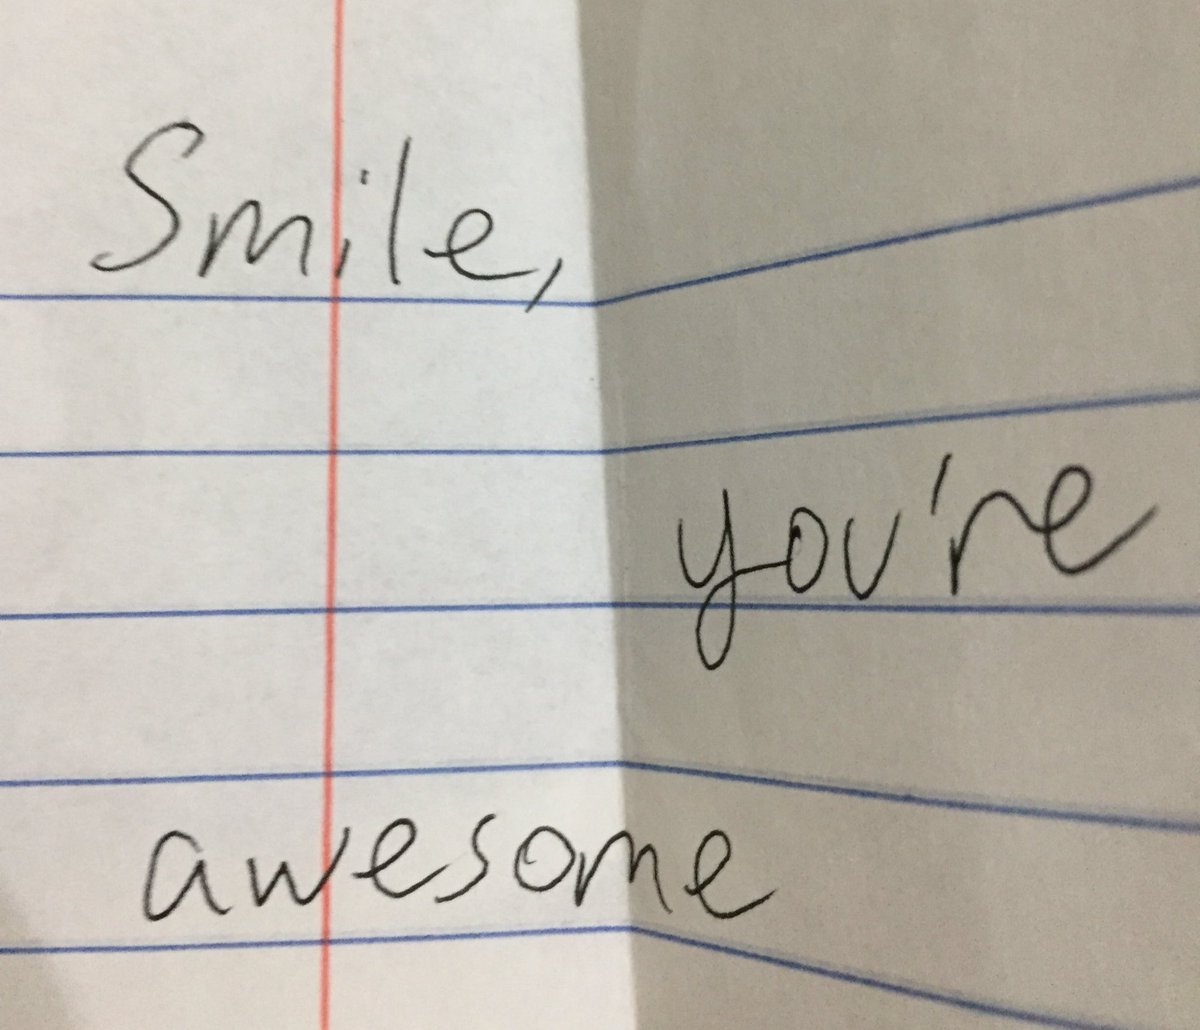 Smile,
you're
awesome